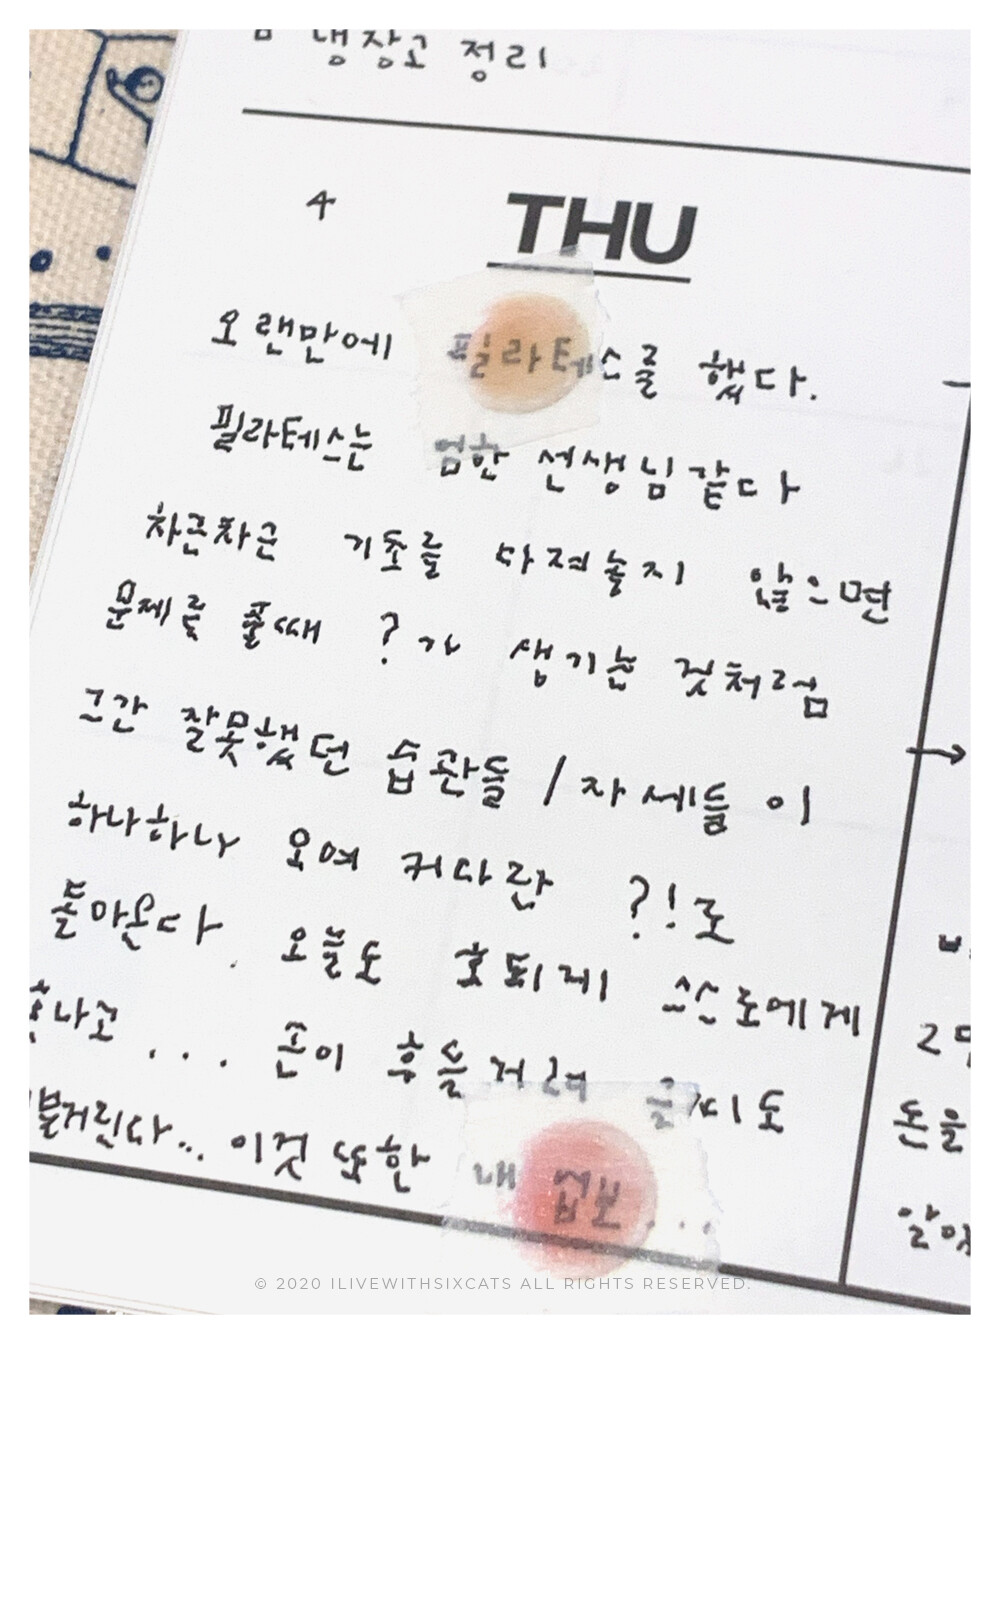 냉장고 정리
4 THU
오랜만에 필라테스를 했다.
필라테스는 엄한 선생님같다
차근차근 기초를 다져놓지 않으면
문제를 풀때 ?가 생기는 것처럼
그간 잘못했던 습관들 / 자세들이
하나하나 모여 커다란 ?!로
돌아온다. 오늘도 호되게 스스로에게
혼나고 ... 손이 후들거려 글씨도
거린다... 이것 또한 내 업보...
돈을
© 2020 ILIVEWITHSIXCATS ALL RIGHTS RESERVED.